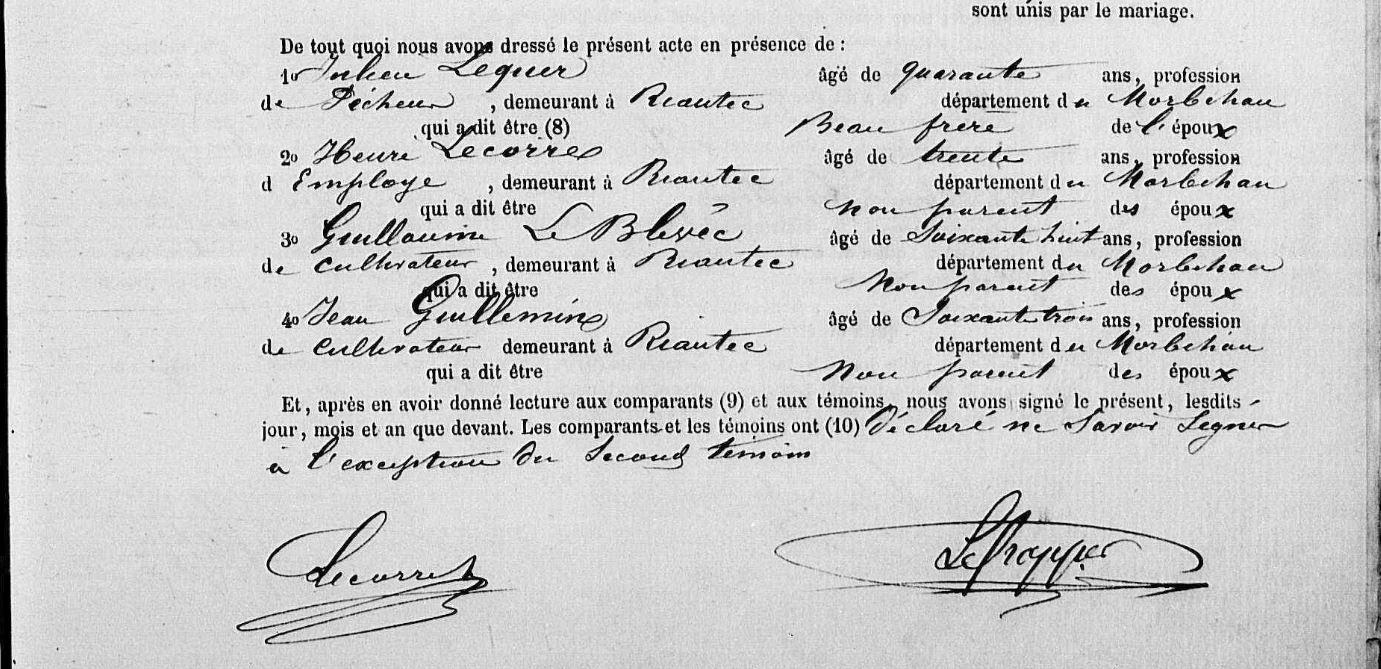 sont unis par le mariage.
De tout quoi nous avons dressé le présent acte en présence de :
1o Julien Lequer âgé de quarante ans, profession
de Pêcheur, demeurant à Riantec département du Morbihan
qui a dit être (8) Beau frère de l'époux
2o Lecorre âgé de trente ans, profession
d Employé, demeurant à Riantec département du Morbihan
qui a dit être non parent des époux
3o Guillaume Le Blévéc âgé de Soixante huit ans, profession
de cultivateur, demeurant à Riantec département du Morbihan
qui a dit être Non parent des époux
4o Jean Guillemin âgé de Soixante trois ans, profession
de cultivateur demeurant à Riantec département du Morbihan
qui a dit être Non parent des époux
Et, après en avoir donné lecture aux comparants (9) et aux témoins, nous avons signé le présent, lesdits
jour, mois et an que devant. Les comparants et les témoins ont (10) déclaré ne Savoir Signer
à l'exception du Second témoin
Lecorre